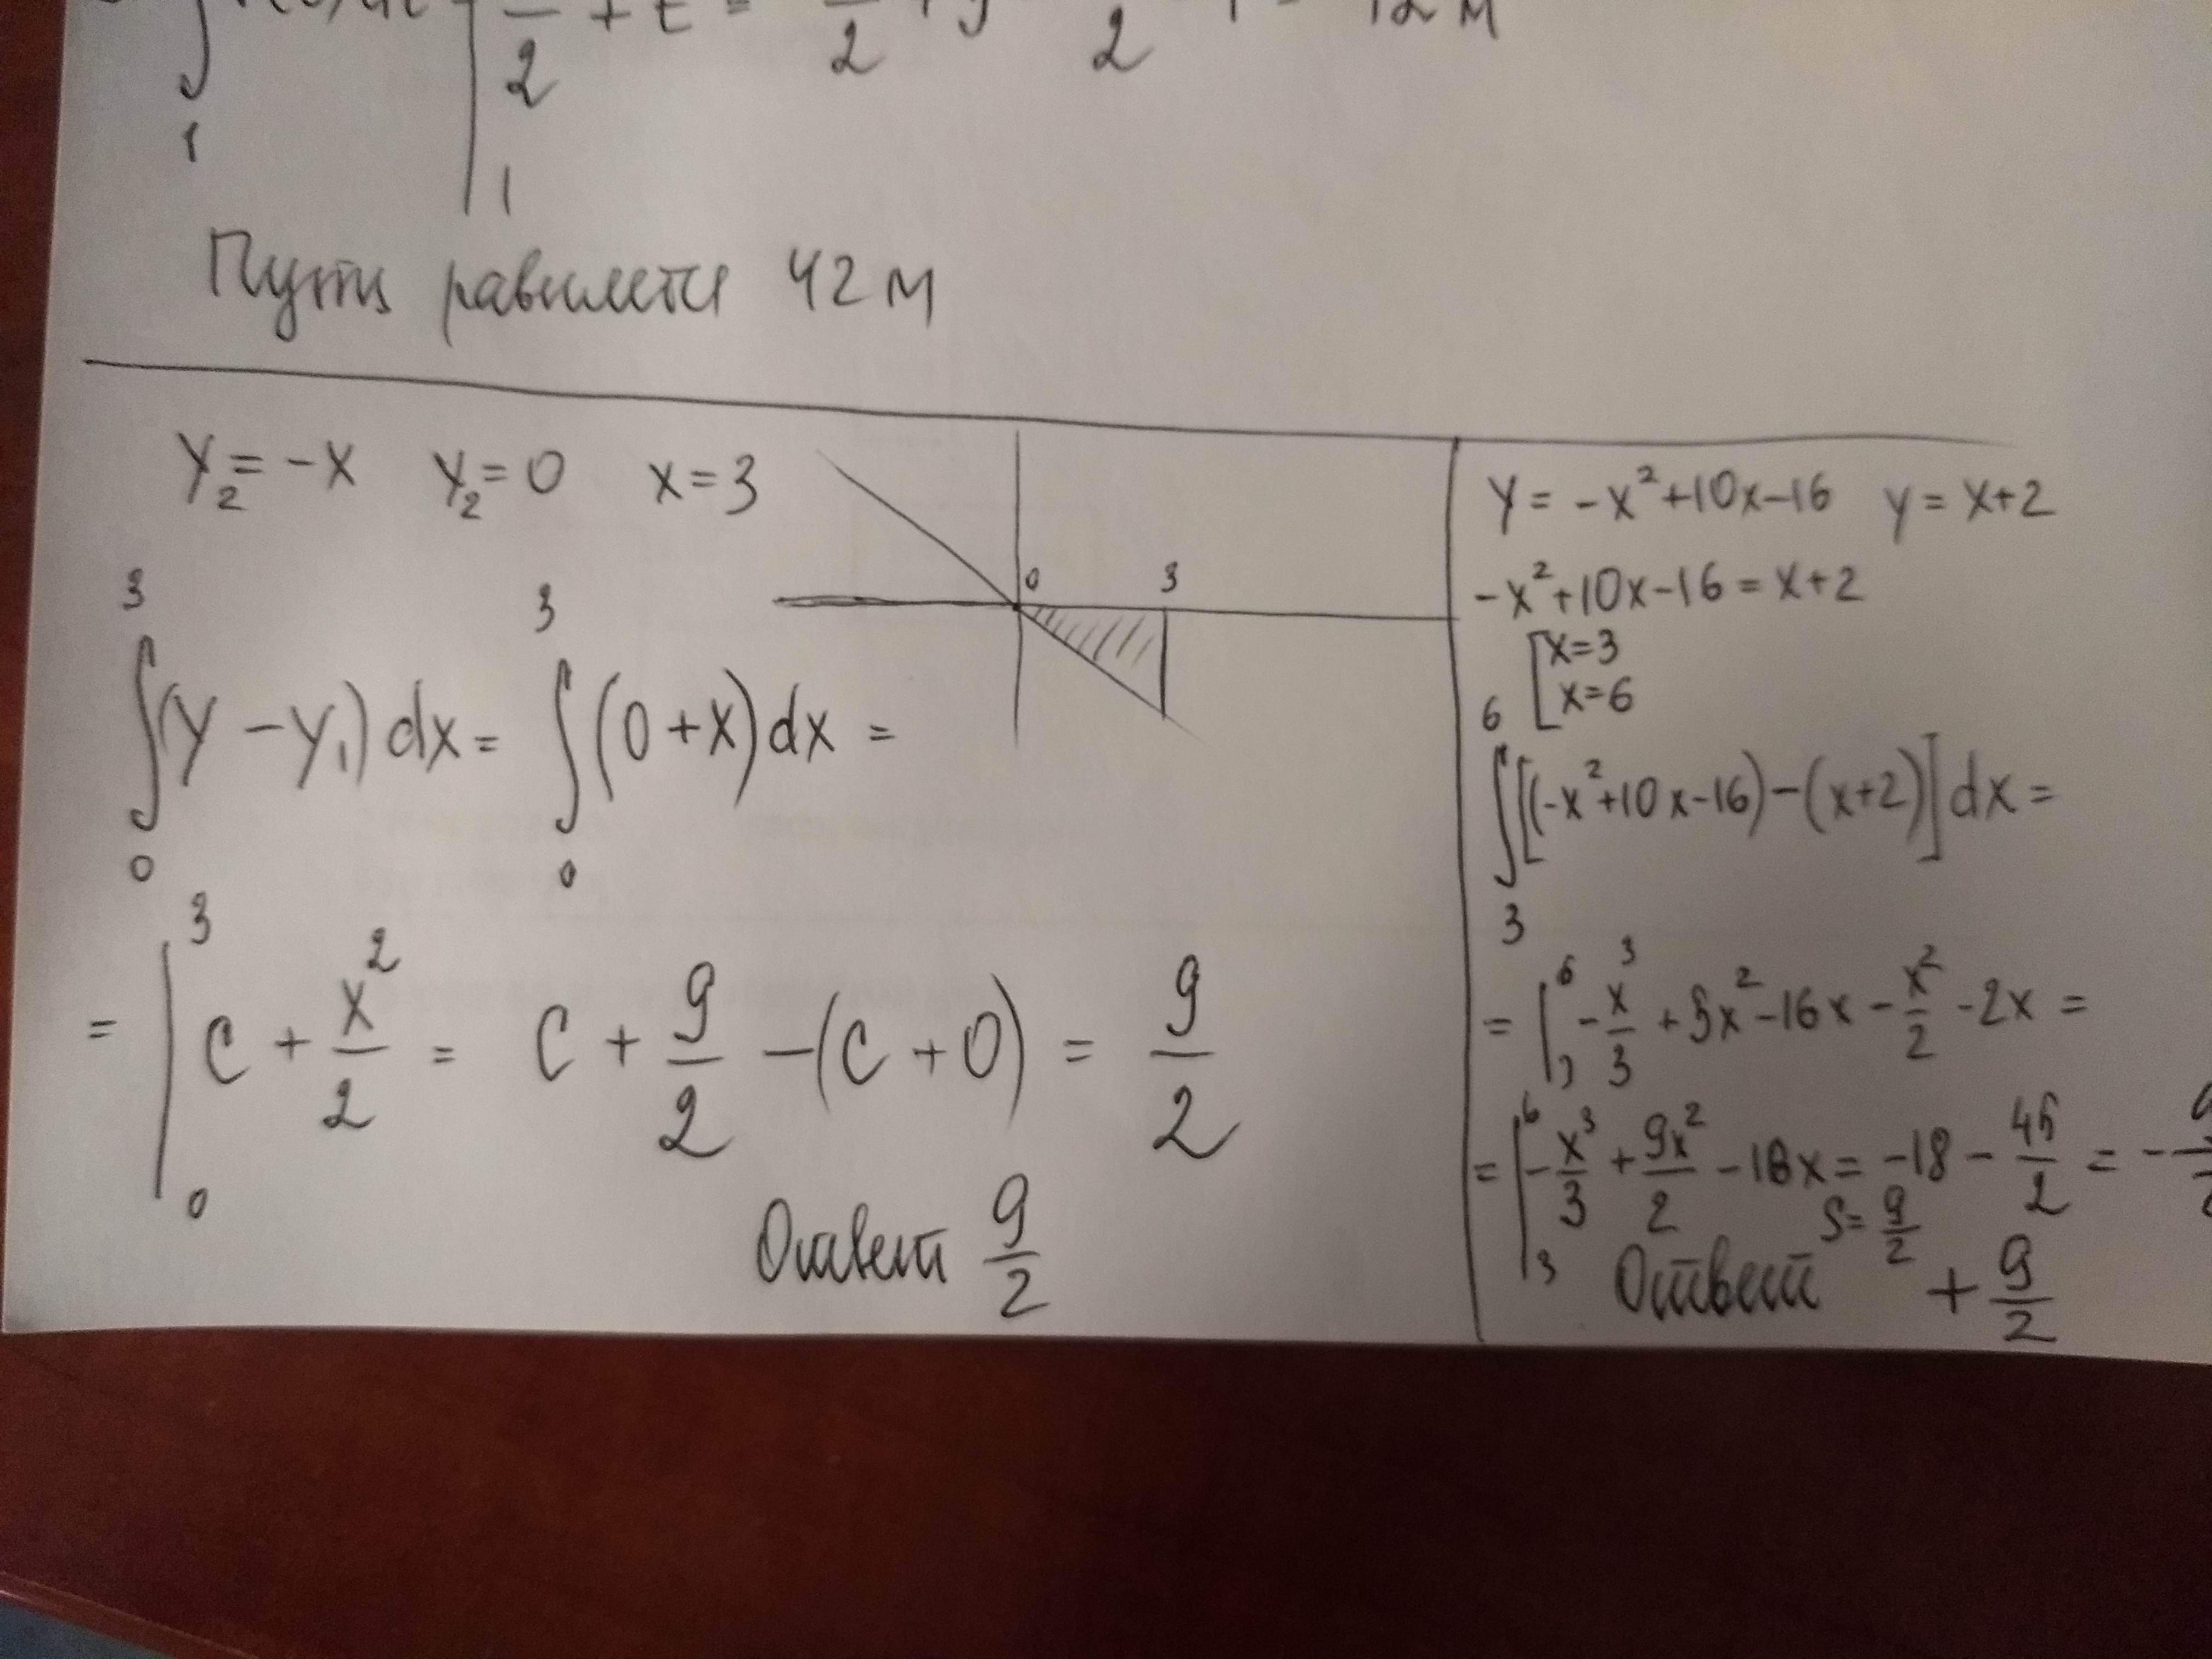 2 + t = 2 2 12 м
1 1
Путь равняется 42 м
y₂ = -x y₂ = 0 x = 3
0 3
3 3
∫(y - y₁) dx = ∫(0 + x) dx =
0 0
= |₀³ C + x²/2 = C + 9/2 - (C + 0) = 9/2
Ответ 9/2
y = -x² + 10x - 16 y = x + 2
-x² + 10x - 16 = x + 2
[x = 3
[x = 6
6
∫[(-x² + 10x - 16) - (x + 2)] dx =
3
= |₃⁶ -x³/3 + 5x² - 16x - x²/2 - 2x =
= |₃⁶ -x³/3 + 9x²/2 - 18x = -18 - 45/2 = -
S = 9/2
Ответ + 9/2